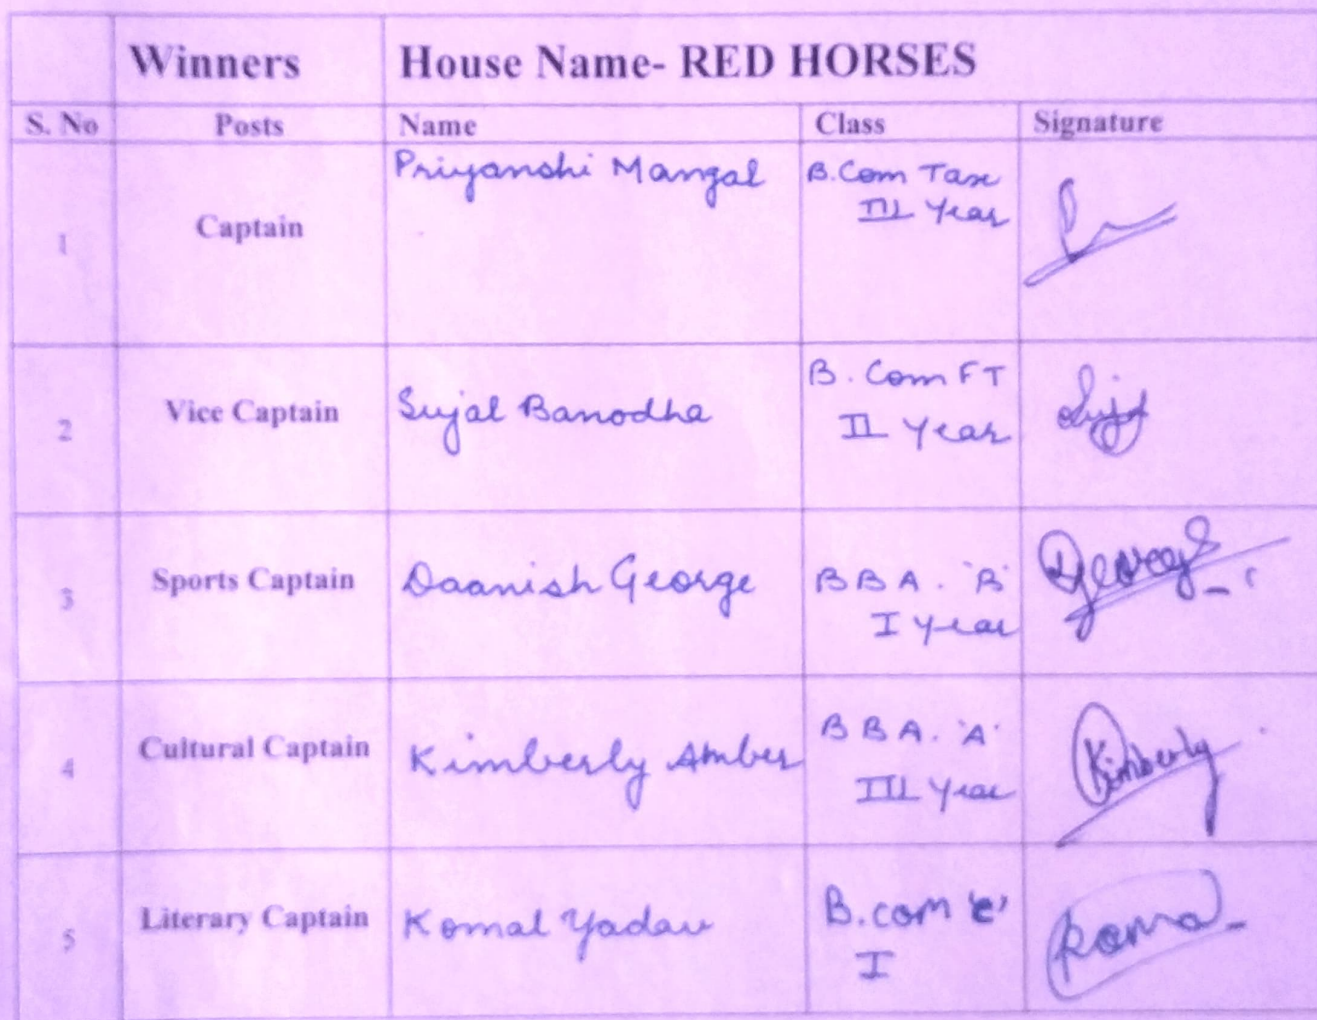 Winners House Name- RED HORSES
S. No Posts Name Class Signature
1 Captain Priyanshi Mangal B.Com Tax
III Year
2 Vice Captain Sujal Banodha B. Com FT
II Year
3 Sports Captain Daanish George BBA. 'B'
I Year George
4 Cultural Captain Kimberly Amber BBA. 'A'
III Year Kimberly
5 Literary Captain Komal Yadav B.com 'e'
I Komal